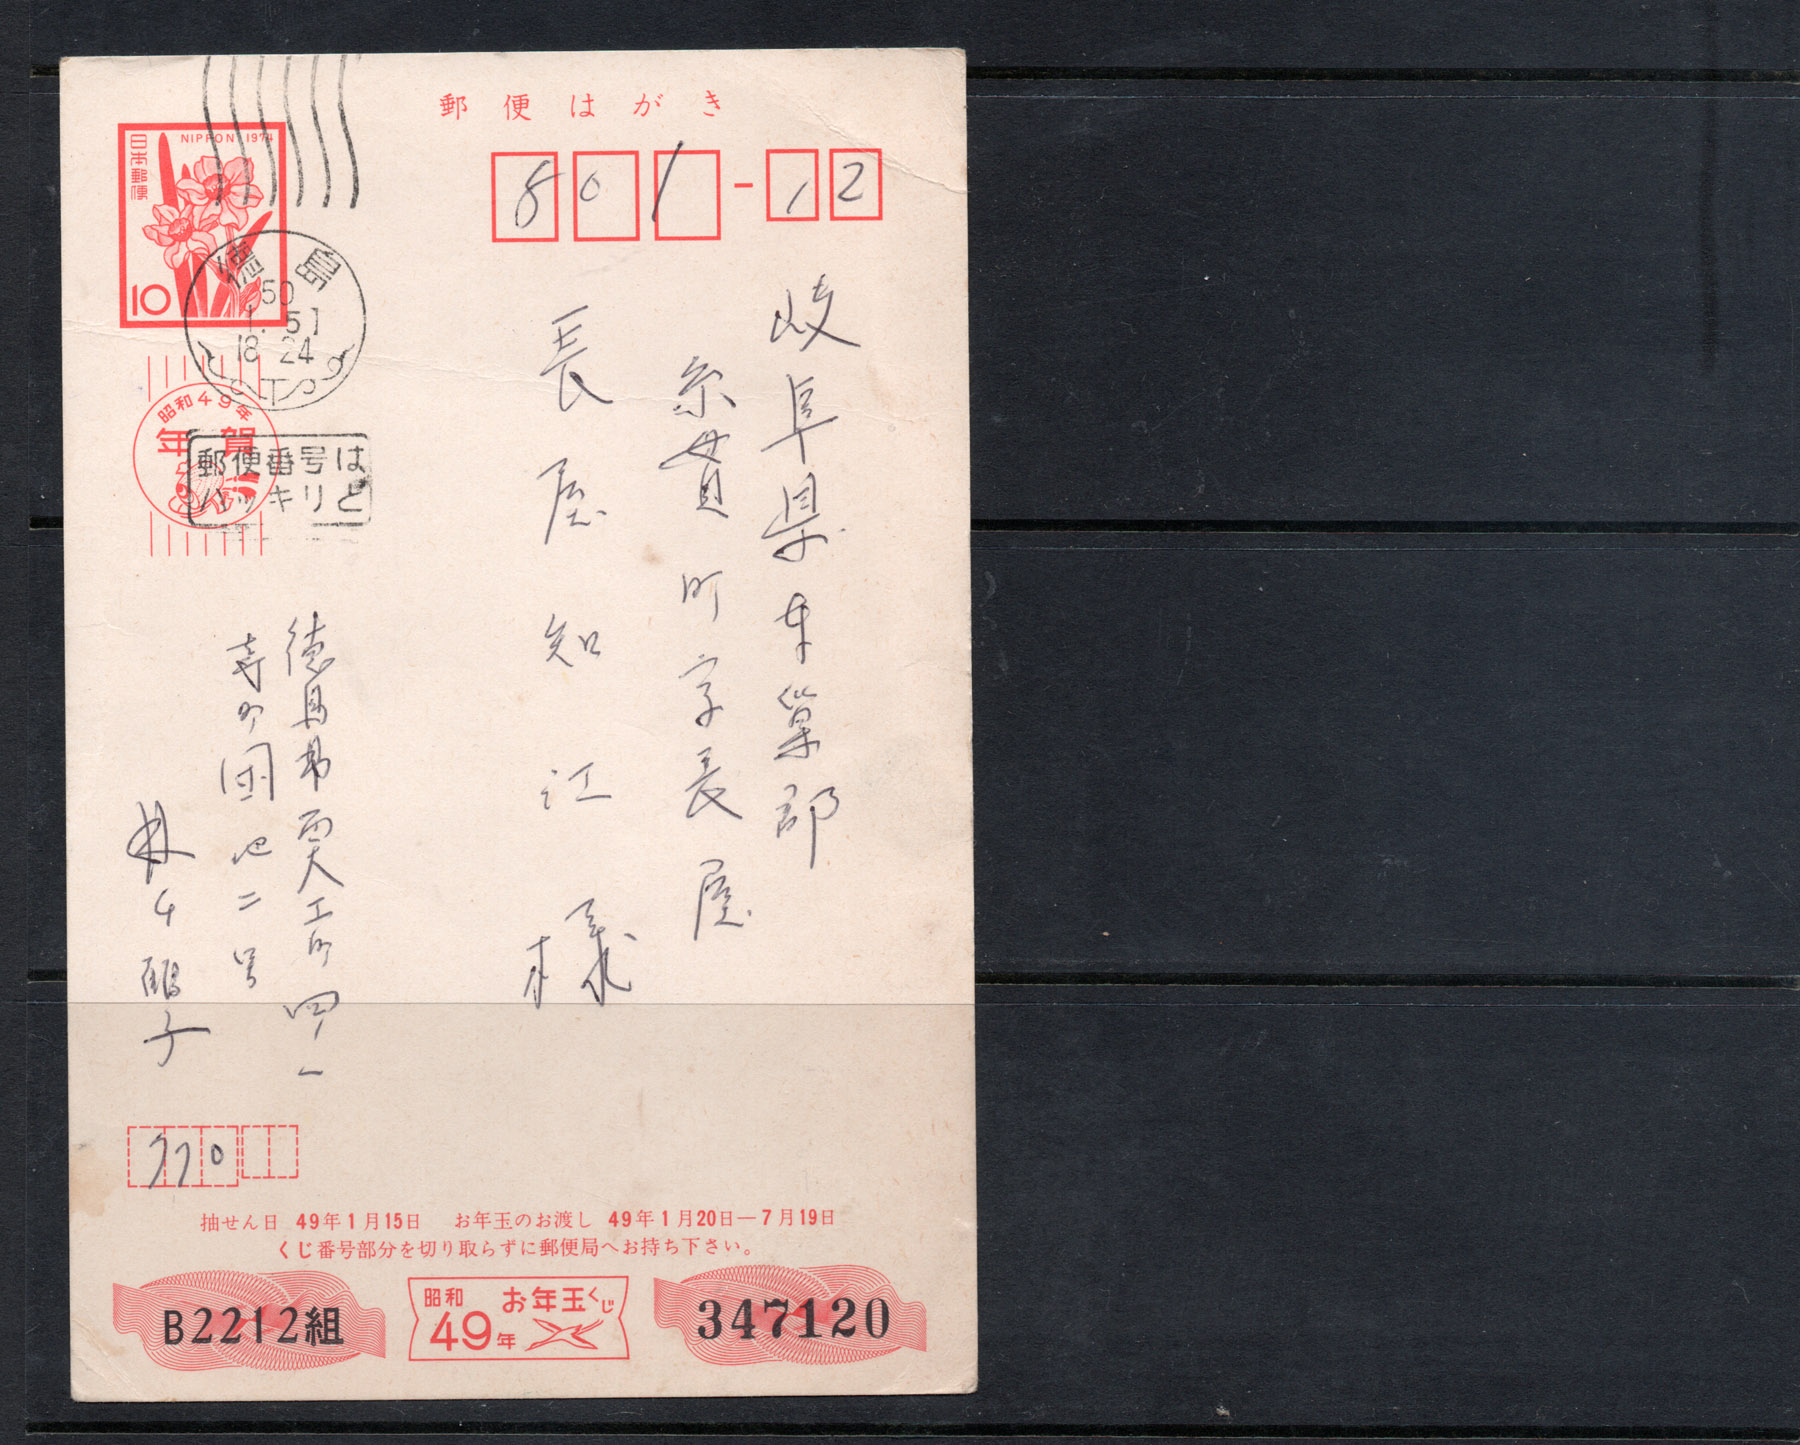 郵便はがき
NIPPON 1974
日本郵便
10
徳島
50
1. 5
18-24
昭和49年
年賀
郵便番号は
ハッキリと
801-12
岐阜県本巣郡
糸貫町字長屋
長屋知江様
徳島市西大工町四ノ一
寺町団地二号
770
抽せん日 49年1月15日 お年玉のお渡し 49年1月20日—7月19日
くじ番号部分を切り取らずに郵便局へお持ち下さい。
B2212組
昭和49年 お年玉くじ
347120